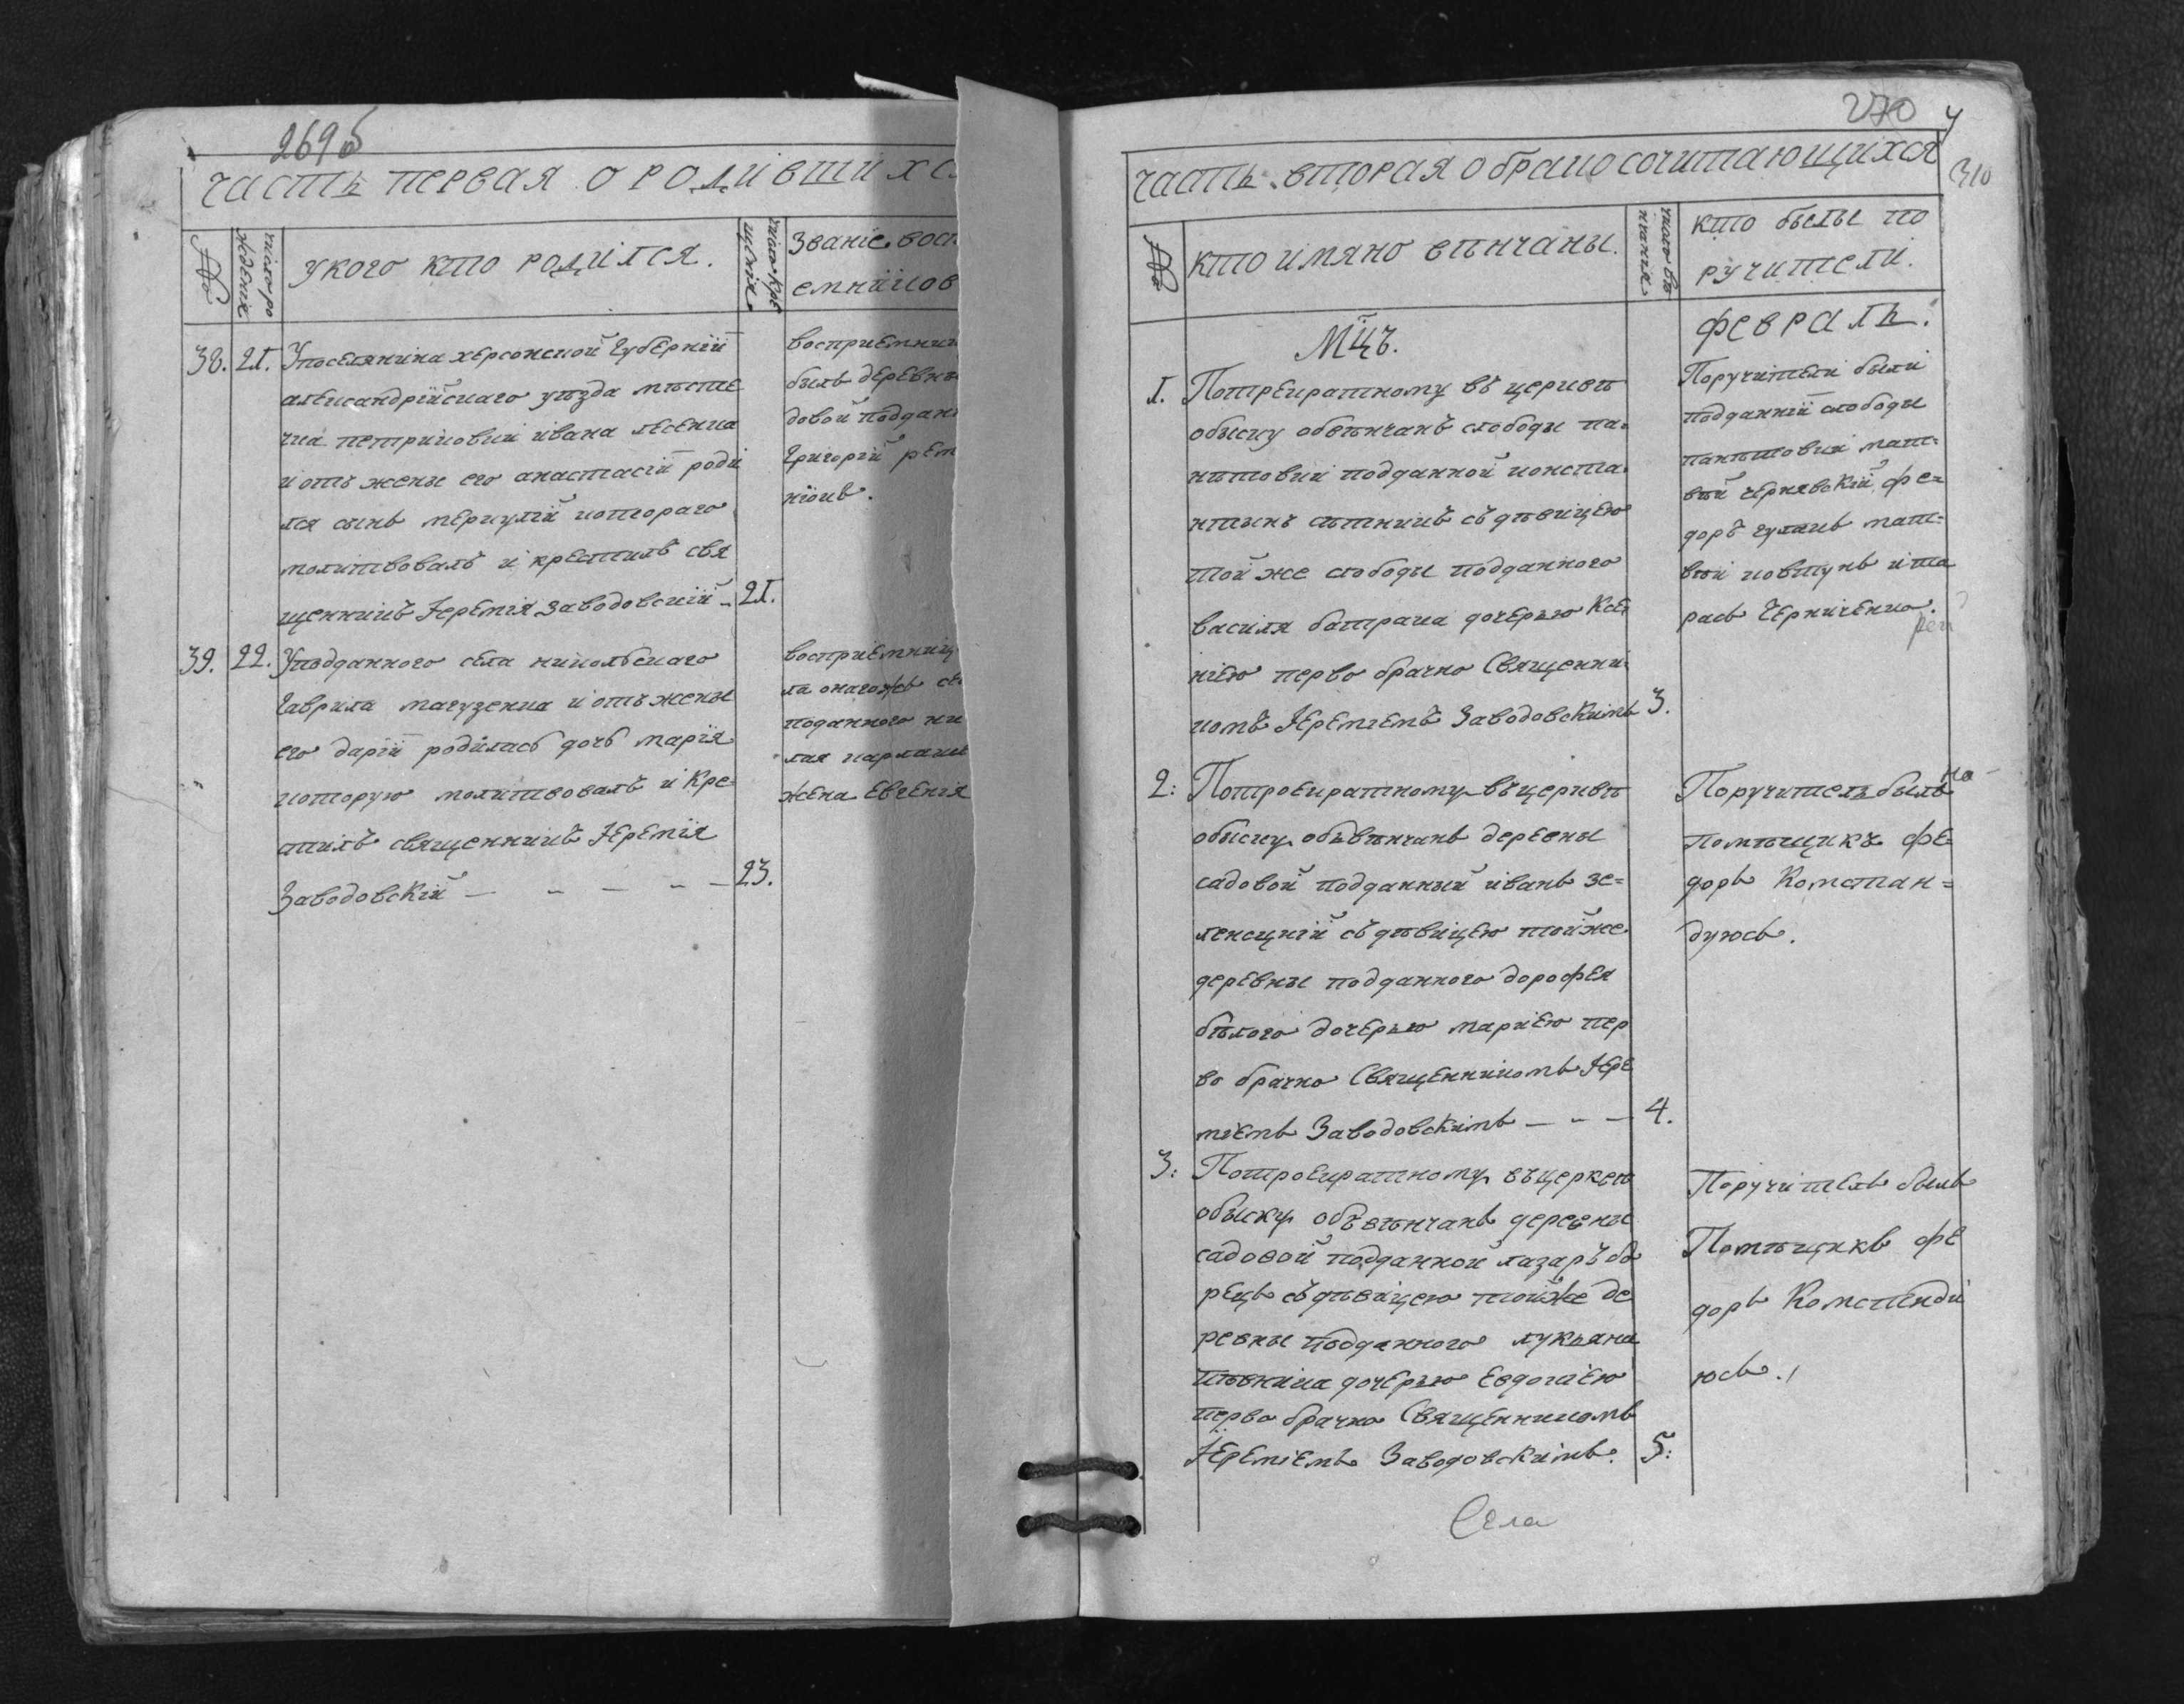 269б
часть первая о родившихс
№
число ро
жденія
укого кто родился.
число кре
щенія
Званіе вос
емниковъ
38. 21. Упоселянина херсонской Губерніи
александрійскаго уѣзда мѣсте
чка петриковки ивана лесенка
и отъ жены его анастасіи роди
лся сынъ меркулій котораго
молитвовалъ и крестилъ свя
щенникъ Іеремія Заводовскій – 21.
восприемник
былъ деревнѣ
довой поддан
Григорій рет
ніокъ.
39. 22. Уподданного села никольскаго
Гаврила магузенка и отъ жены
его даріи родилась дочь марія
которую молитвовалъ и кре=
стилъ священникъ Іеремія
Заводовскій — – — – — 23.
восприемниц
ла оногожъ се
поданного ни
лая
жена Евгенія
270
310
часть вторая о бракосочитающихся
№
кто имяно вѣнчаны.
число вѣ
нчанія
кто былы по
ручители.
Мцъ.
февраль.
1. Потреикратному въ церквѣ
обыску обвѣнчанъ слободы па=
нътовки подданной конста=
нтынъ сѣтникъ съ дѣвицею
той же слободы подданного
василя батрака дочерью Ксе=
ніею перво брачно Священни=
комъ Іереміемъ Заводовскимъ 3.
Поручители были
подданніи слободы
панътовки мат=
вѣй чернявскій, фе=
доръ гулакъ мат=
вѣй ковтунъ и та
расъ Черниченко.
2: Потроекратному въ церквѣ
обыску объвѣнчанъ деревны
садовой подданный иванъ зе=
ленецкій съ дѣвицею тойже
деревны подданного дорофея
бѣлого дочерью маріею пер
во брачно Священникомъ Іере
міемъ Заводовскимъ — – — 4.
Поручитель былъ
помѣщикъ фе=
доръ Комстан=
дуюсь.
3: Потроекратному въ церквѣ
обыску объвѣнчанъ деревны
садовой подданной лазаръ бо
рецъ съ дѣвицею тойже де
ревны подданного лукъяна
пѣвника дочерью Евдокіею
перво брачно Священникомъ
Іереміемъ Заводовскимъ. 5:
Поручитель былъ
Помѣщикъ фе
доръ Комстенди
юсь.
Села